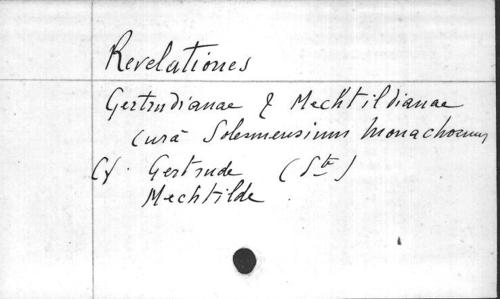 Revelationes
Gertrudianae & Mechtildianae
cura Solesmensium monachorum
Cf. Gertrude (Ste)
Mechtilde.